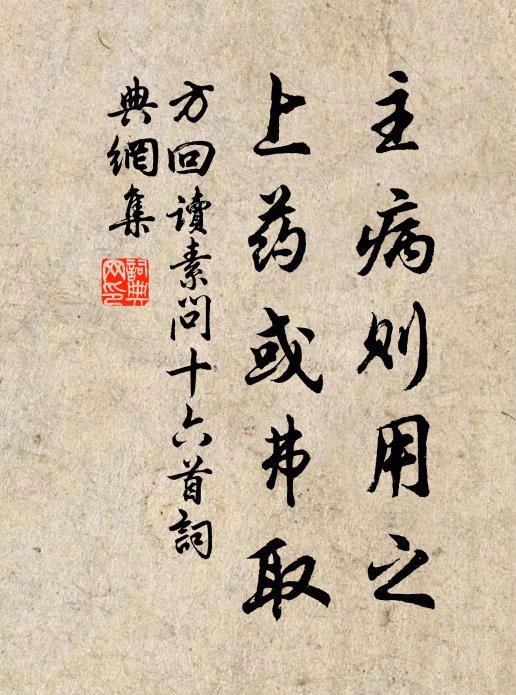 主病则用之
上药或弗取
方回讀素問十六首詞
典網集
詞典
网印